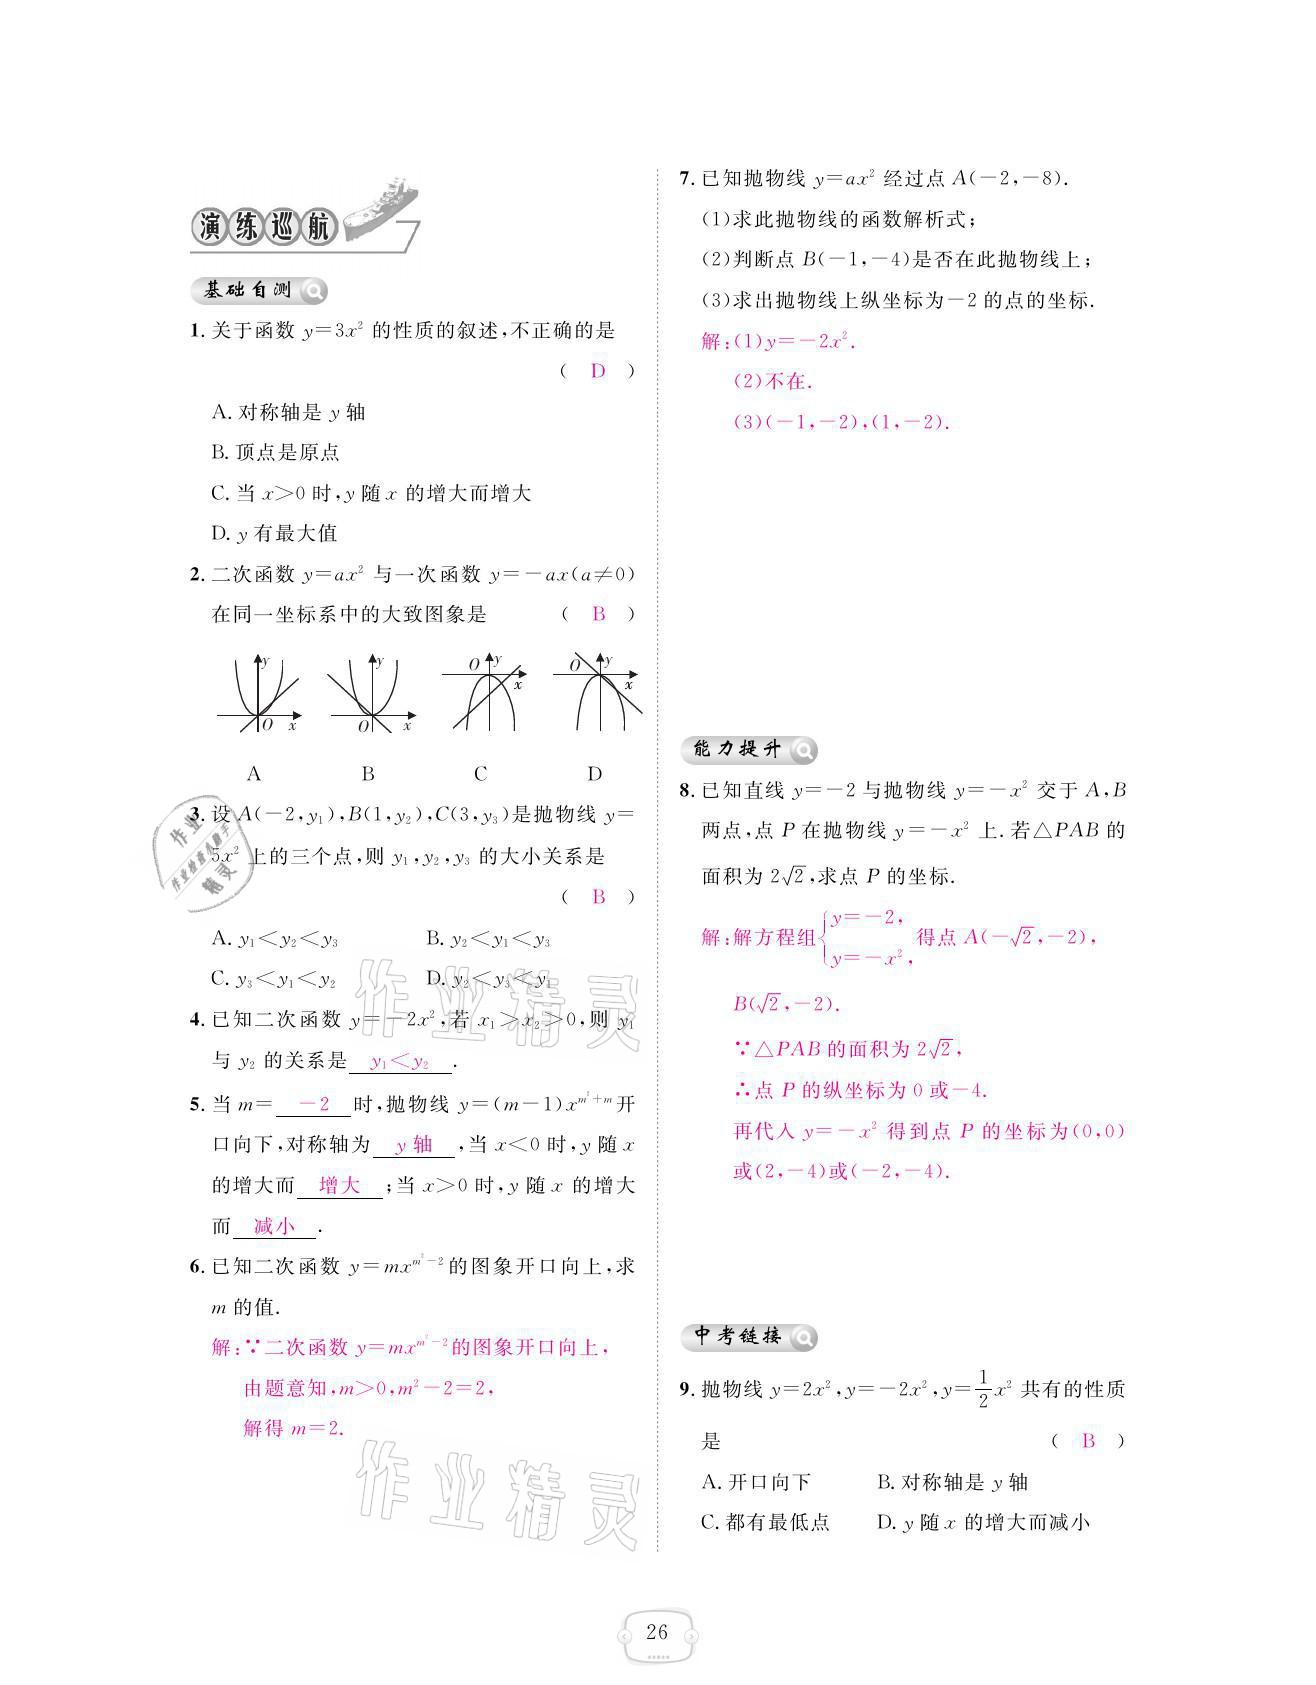 演练巡航
基础自测
1. 关于函数 y=3x² 的性质的叙述,不正确的是
( D )
A. 对称轴是 y 轴
B. 顶点是原点
C. 当 x>0 时,y 随 x 的增大而增大
D. y 有最大值
2. 二次函数 y=ax² 与一次函数 y=-ax(a≠0)
在同一坐标系中的大致图象是 ( B )
y O x y O x O y x O y x
A B C D
3. 设 A(-2,y₁),B(1,y₂),C(3,y₃)是抛物线 y=
5x² 上的三个点,则 y₁,y₂,y₃ 的大小关系是
( B )
A. y₁<y₂<y₃ B. y₂<y₁<y₃
C. y₃<y₁<y₂ D. y₂<y₃<y₁
4. 已知二次函数 y=-2x²,若 x₁>x₂>0,则 y₁
与 y₂ 的关系是 y₁<y₂ .
5. 当 m= -2 时,抛物线 y=(m-1)x^{m²+m}开
口向下,对称轴为 y 轴 ,当 x<0 时,y 随 x
的增大而 增大 ;当 x>0 时,y 随 x 的增大
而 减小 .
6. 已知二次函数 y=mx^{m²-2}的图象开口向上,求
m 的值.
解:∵二次函数 y=mx^{m²-2}的图象开口向上,
由题意知,m>0,m²-2=2,
解得 m=2.
7. 已知抛物线 y=ax² 经过点 A(-2,-8).
(1)求此抛物线的函数解析式;
(2)判断点 B(-1,-4)是否在此抛物线上;
(3)求出抛物线上纵坐标为-2 的点的坐标.
解:(1)y=-2x².
(2)不在.
(3)(-1,-2),(1,-2).
能力提升
8. 已知直线 y=-2 与抛物线 y=-x² 交于 A,B
两点,点 P 在抛物线 y=-x² 上.若△PAB 的
面积为 2√2,求点 P 的坐标.
解:解方程组{y=-2, y=-x², 得点 A(-√2,-2),
B(√2,-2).
∵△PAB 的面积为 2√2,
∴点 P 的纵坐标为 0 或-4.
再代入 y=-x² 得到点 P 的坐标为(0,0)
或(2,-4)或(-2,-4).
中考链接
9. 抛物线 y=2x²,y=-2x²,y=1/2x² 共有的性质
是 ( B )
A. 开口向下 B. 对称轴是 y 轴
C. 都有最低点 D. y 随 x 的增大而减小
26
作业精灵
作业精灵
作业
作业检查小助手
精灵